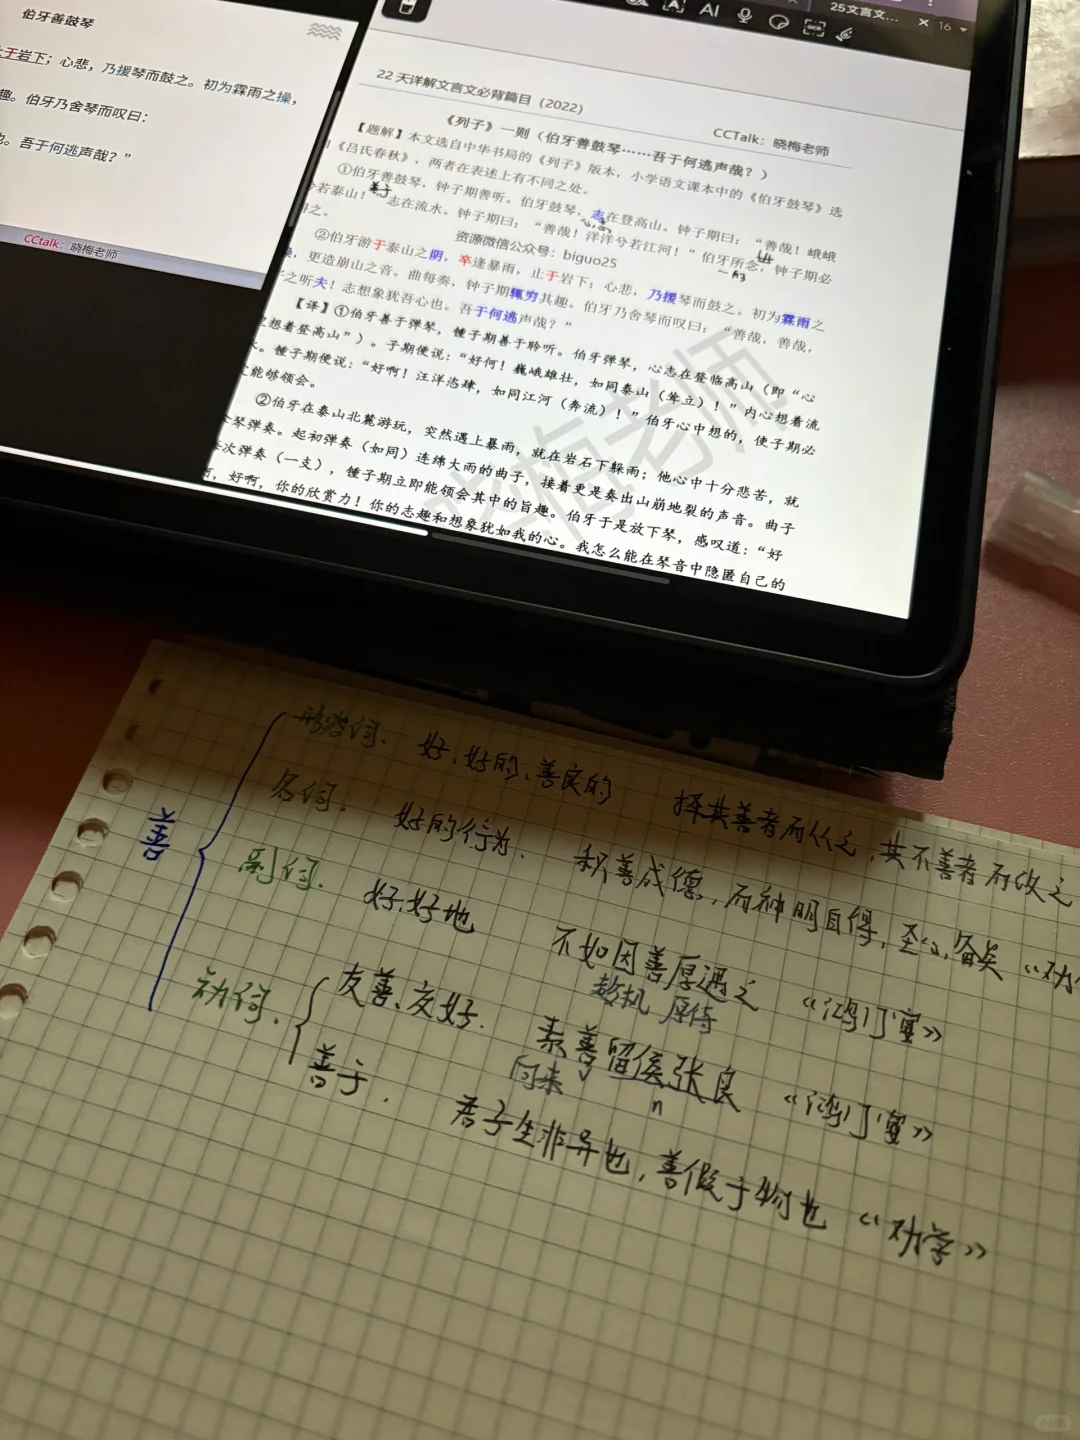 伯牙善鼓琴
止于岩下；心悲，乃援琴而鼓之。初为霖雨之操，
趣。伯牙乃舍琴而叹曰：
也。吾于何逃声哉？”
CCtalk：晓梅老师
AI
25文言文...
× 16
22 天详解文言文必背篇目（2022）
CCTalk：晓梅老师
《列子》一则（伯牙善鼓琴……吾于何逃声哉？）
【题解】本文选自中华书局的《列子》版本，小学语文课本中的《伯牙鼓琴》选
《吕氏春秋》，两者在表述上有不同之处。
①伯牙善鼓琴，钟子期善听。伯牙鼓琴，志在登高山。钟子期曰：“善哉！峨峨
善于
心志
兮若泰山！”志在流水。钟子期曰：“善哉！洋洋兮若江河！”伯牙所念，钟子期必
得之。
资源微信公众号：biguo25
②伯牙游于泰山之阴，卒逢暴雨，止于岩下；心悲，乃援琴而鼓之。初为霖雨之
操，更造崩山之音。曲每奏，钟子期辄穷其趣。伯牙乃舍琴而叹曰：“善哉，善哉，
子之听夫！志想象犹吾心也。吾于何逃声哉？”
【译】①伯牙善于弹琴，锺子期善于聆听。伯牙弹琴，心志在登临高山（即“心
里想着登高山”）。子期便说：“好何！巍峨雄壮，如同泰山（耸立）！”内心想着流
水。锺子期便说：“好啊！汪洋恣肆，如同江河（奔流）！”伯牙心中想的，使子期必
定能够领会。
②伯牙在泰山北麓游玩，突然遇上暴雨，就在岩石下躲雨；他心中十分悲苦，就
拿琴弹奏。起初弹奏（如同）连绵大雨的曲子，接着更是奏出山崩地裂的声音。曲子
每次弹奏（一支），锺子期立即能领会其中的旨趣。伯牙于是放下琴，感叹道：“好
啊，好啊，你的欣赏力！你的志趣和想象犹如我的心。我怎么能在琴音中隐匿自己的
晓梅老师
善
形容词. 好、好的、善良的 择其善者而从之，其不善者而改之
名词. 好的行为. 积善成德，而神明自得，圣心备矣《劝
副词. 好、好地 不如因善厚遇之《鸿门宴》
趁机 厚待
动词. 友善、友好. 素善留侯张良《鸿门宴》
向来 v n
善于. 君子生非异也，善假于物也《劝学》